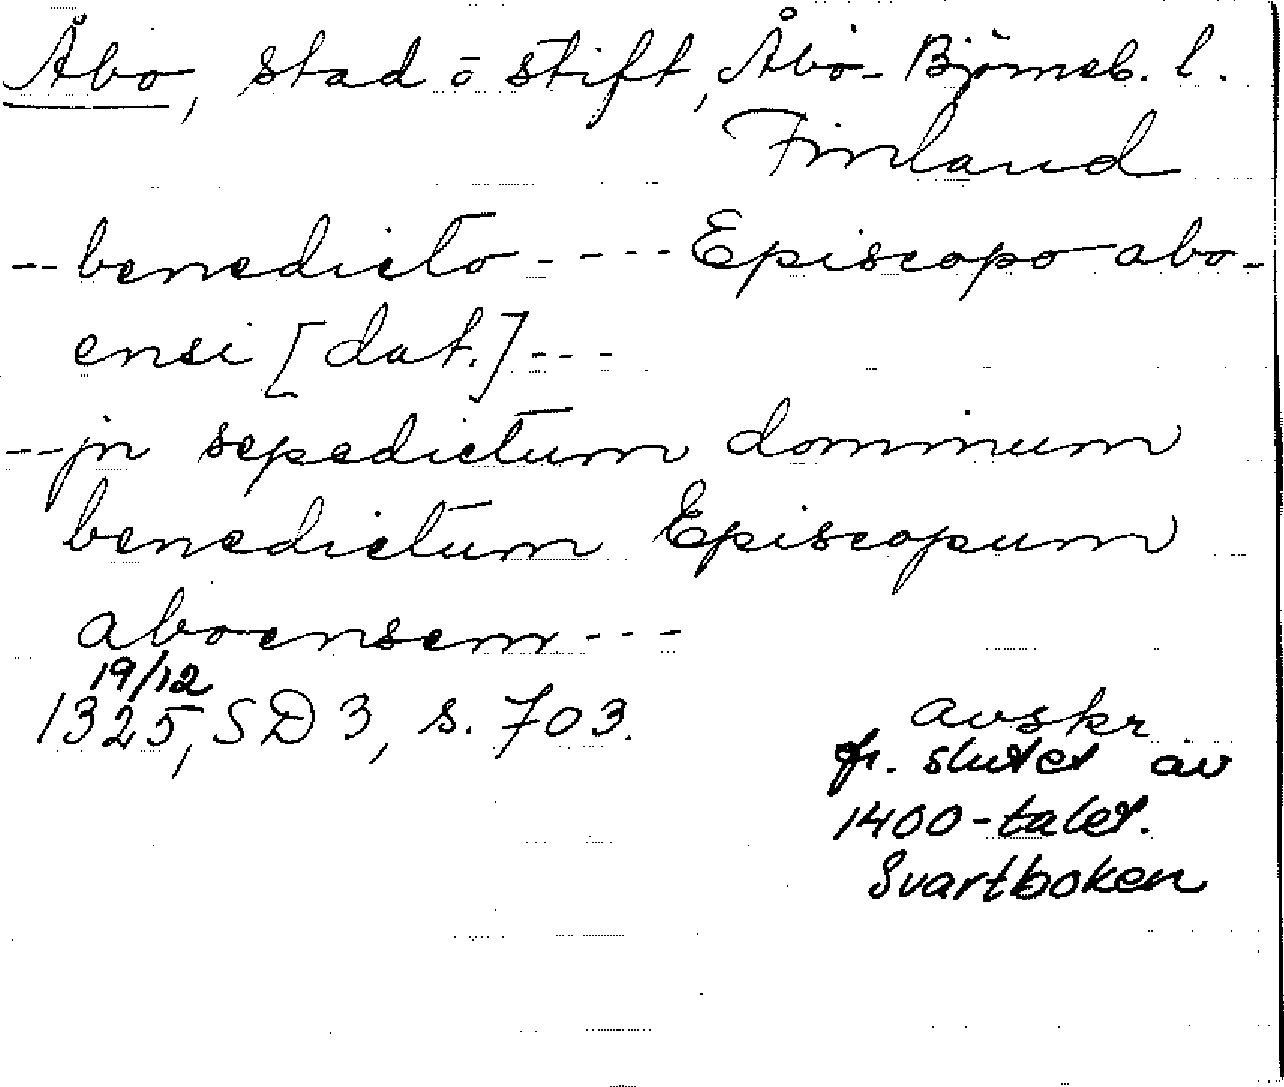 Åbo, stad o stift, Åbo-Björneb. l.
Finland
-- benedicto ---- Episcopo abo-
ensi [dat.] ---
-- jn sepedictum dominum
benedictum Episcopum
aboensem ---
19/12
1325, SD 3, s. 703.
avskr
fr. slutet av
1400-talet.
Svartboken